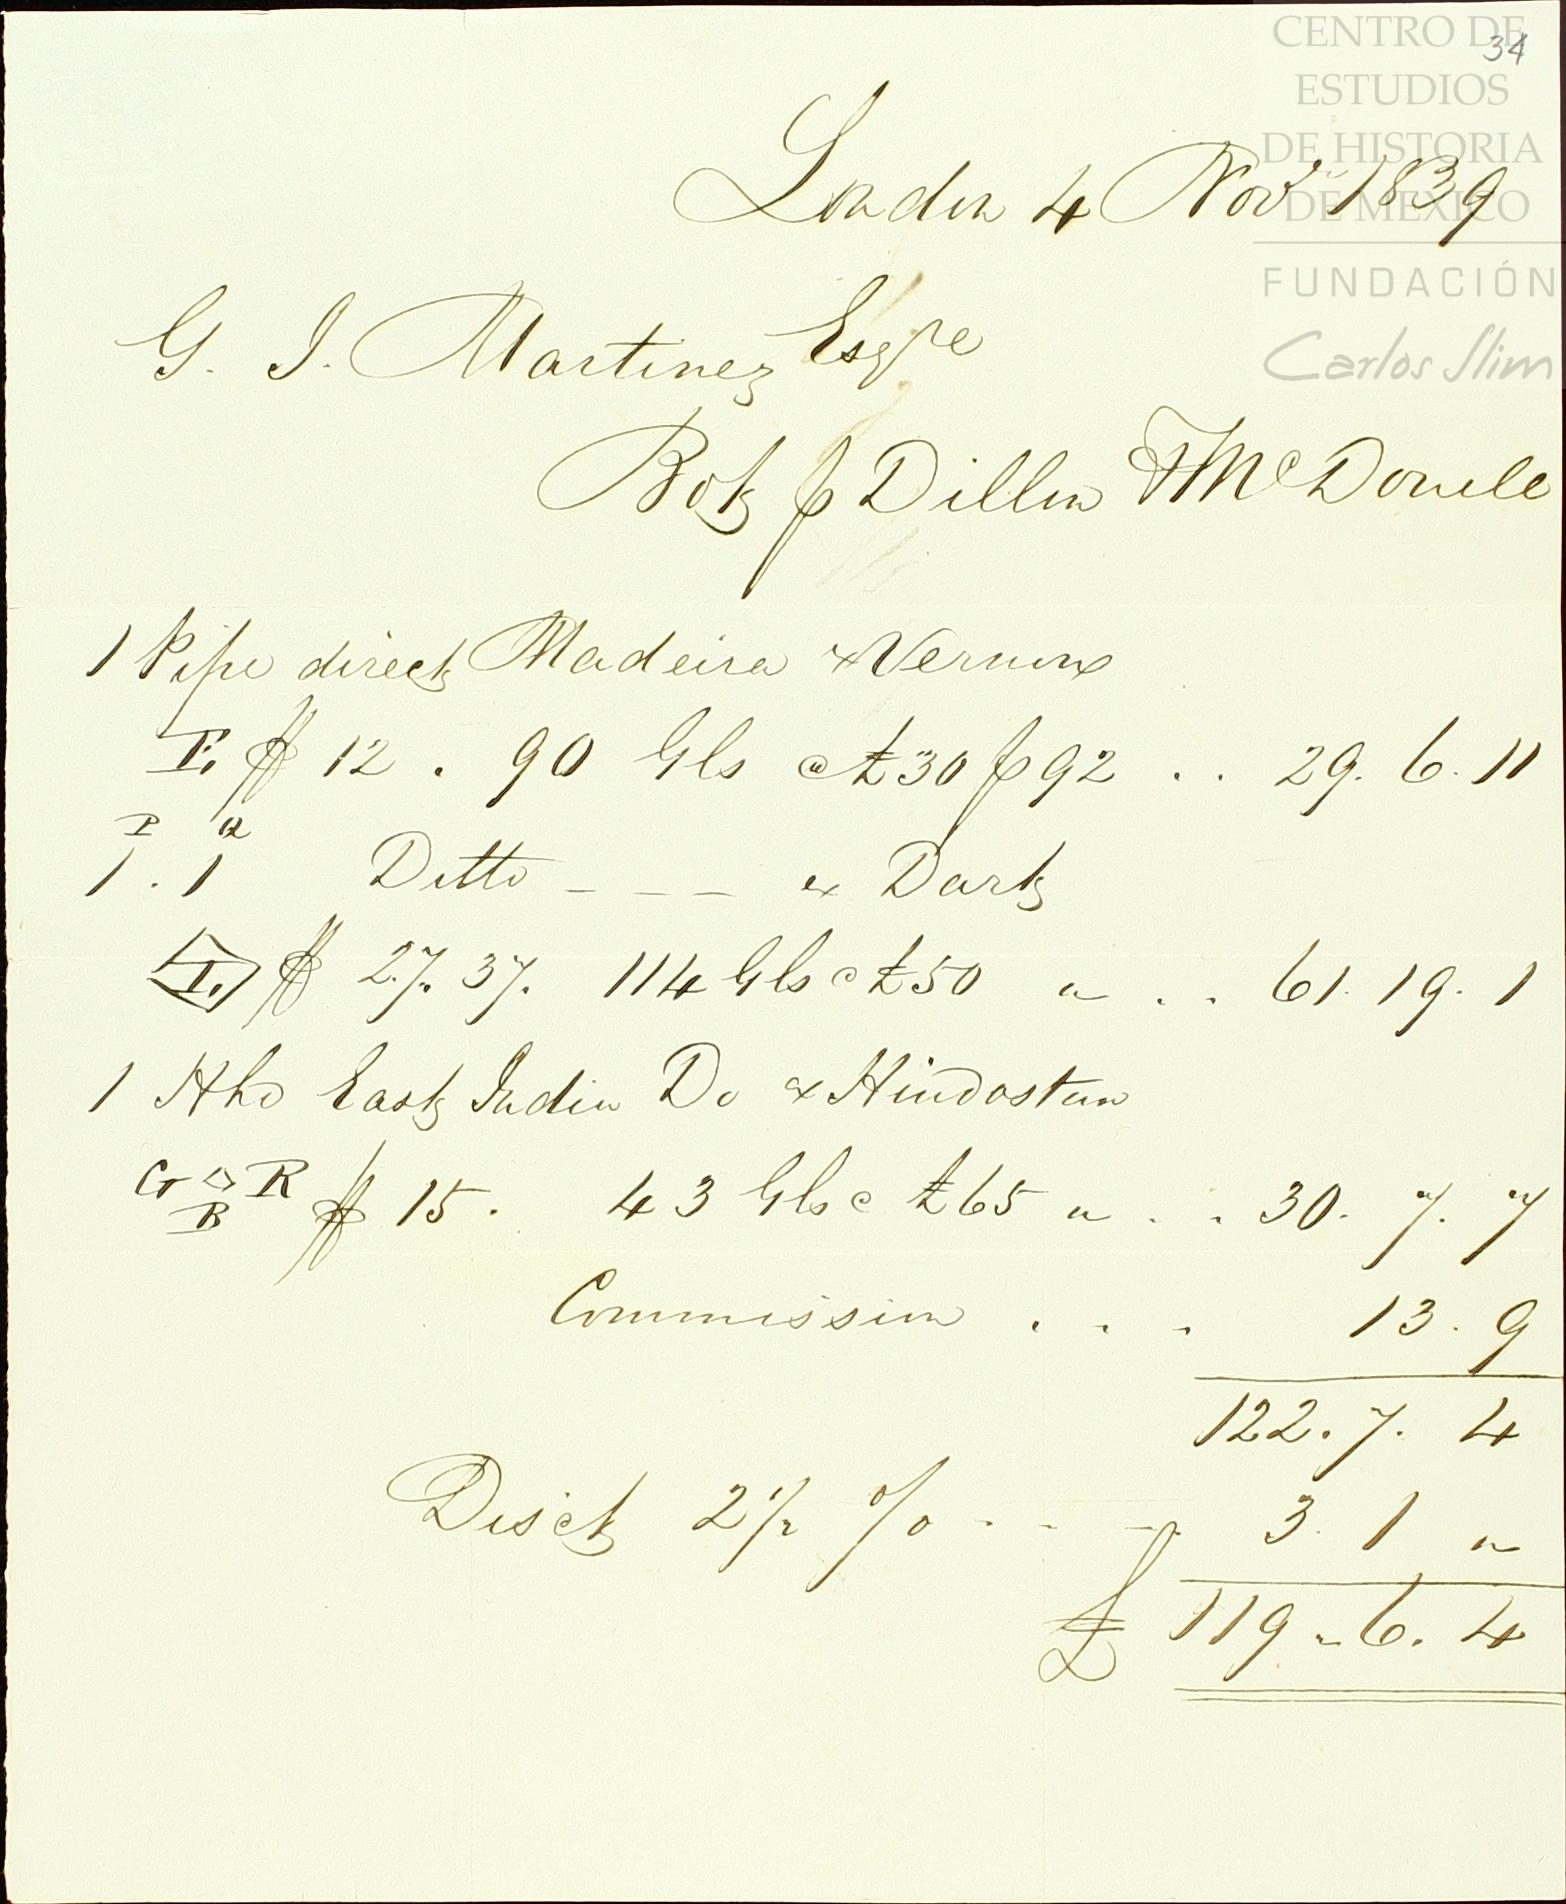 34
CENTRO DE
ESTUDIOS
DE HISTORIA
DE MEXICO
FUNDACIÓN
Carlos Slim
London 4 Novr 1839
G. I. Martinez Esqre
Bot p Dillon & McDonell
1 Pipe direct Madeira ex Vernon
12 . 90 Gls @ £30 p 92 . . 29. 6. 11
P Q
1 . 1 Ditto - - - ex Dart
I. # 27. 37. 114 Gls @ £50 " . . 61. 19. 1
1 Hhd East India Do ex Hindostan
G ◇ R
B # 15. 43 Gls @ £65 " . . 30. 7. 7
Commission . . . 13. 9
122. 7. 4
Disct 2 1/2 % - - - 3. 1 "
£ 119 " 6. 4